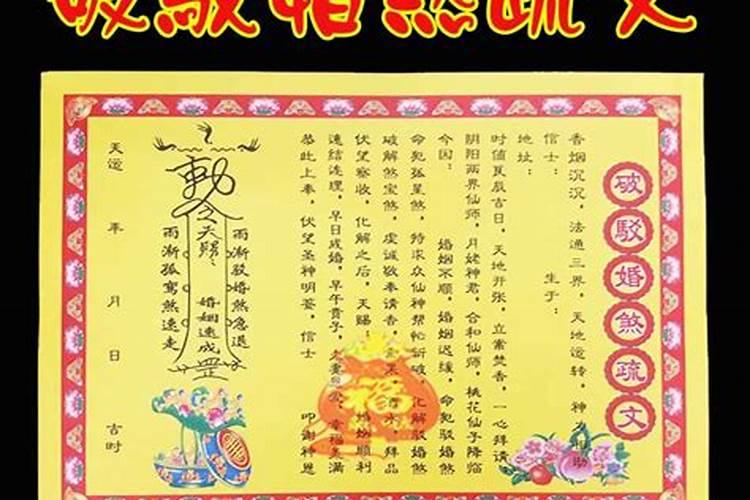 破驳婚煞疏文
破驳婚煞疏文
香烟沉沉，法通三界，天地运转，神力相助
信士： 生于：
地址：
时值良辰吉日，天地开张，立案焚香，一心拜请
阴阳两界仙师，月姥神君，合和仙师，桃花仙子降临
今因： 婚姻不顺，婚姻迟缓，命犯驳婚煞
命犯孤星煞，特求众仙神帮忙斩破，化解驳婚煞
破解煞宝煞，虔诚敬奉请香，拜品
伏望察收，化解之后，天赐 婚姻顺利
速结连理，早日成婚，早午贵子，夫妻恩爱，幸福美满
恭此上奉，伏望圣神明鉴，信士 叩谢神恩
雨渐驳婚煞急退
敕令天赐 婚姻速成 罡
雨渐孤鸾煞速走
天运 年 月 日 吉时
福